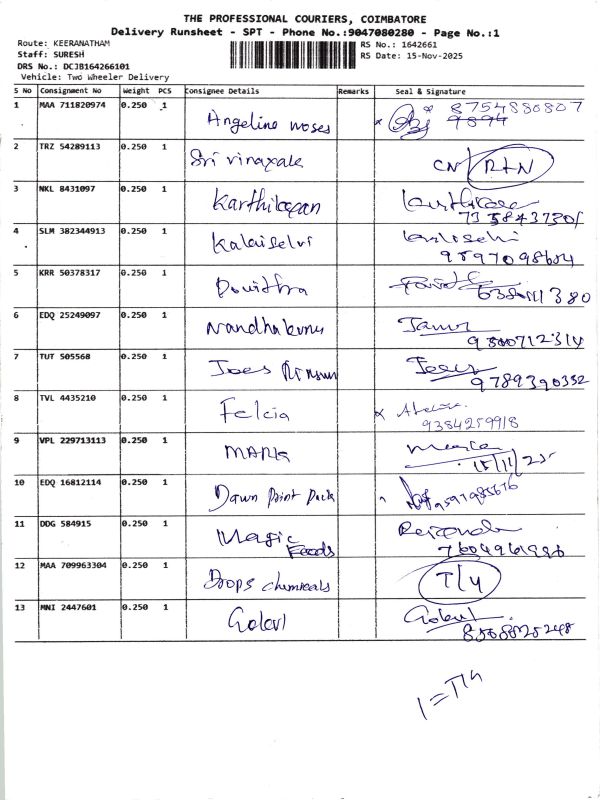 THE PROFESSIONAL COURIERS, COIMBATORE
Delivery Runsheet - SPT - Phone No.:9047080280 - Page No.:1
Route: KEERANATHAM
RS No.: 1642661
Staff: SURESH
RS Date: 15-Nov-2025
DRS No.: DCJB164266101
Vehicle: Two Wheeler Delivery
S No Consignment No Weight PCS Consignee Details Remarks Seal & Signature
1 MAA 711820974 0.250 1 Angeline moses 8754880807
9894
2 TRZ 54289113 0.250 1 Sri vinayaka CN / R+N
3 NKL 8431097 0.250 1 Karthikeyan
7358437301
4 SLM 382344913 0.250 1 Kalaiselvi
9597098604
5 KRR 50378317 0.250 1
6 EDQ 25249097 0.250 1 Nandhakumar
7 TUT 505568 0.250 1 Joes
9789390332
8 TVL 4435210 0.250 1 Felcia
9384259918
9 VPL 229713113 0.250 1 MARK
15/11/25
10 EDQ 16812114 0.250 1 Dawn Print Pack
9597985676
11 DDG 584915 0.250 1 Magic Foods
12 MAA 709963304 0.250 1 Drops chemicals T/4
13 MNI 2447601 0.250 1